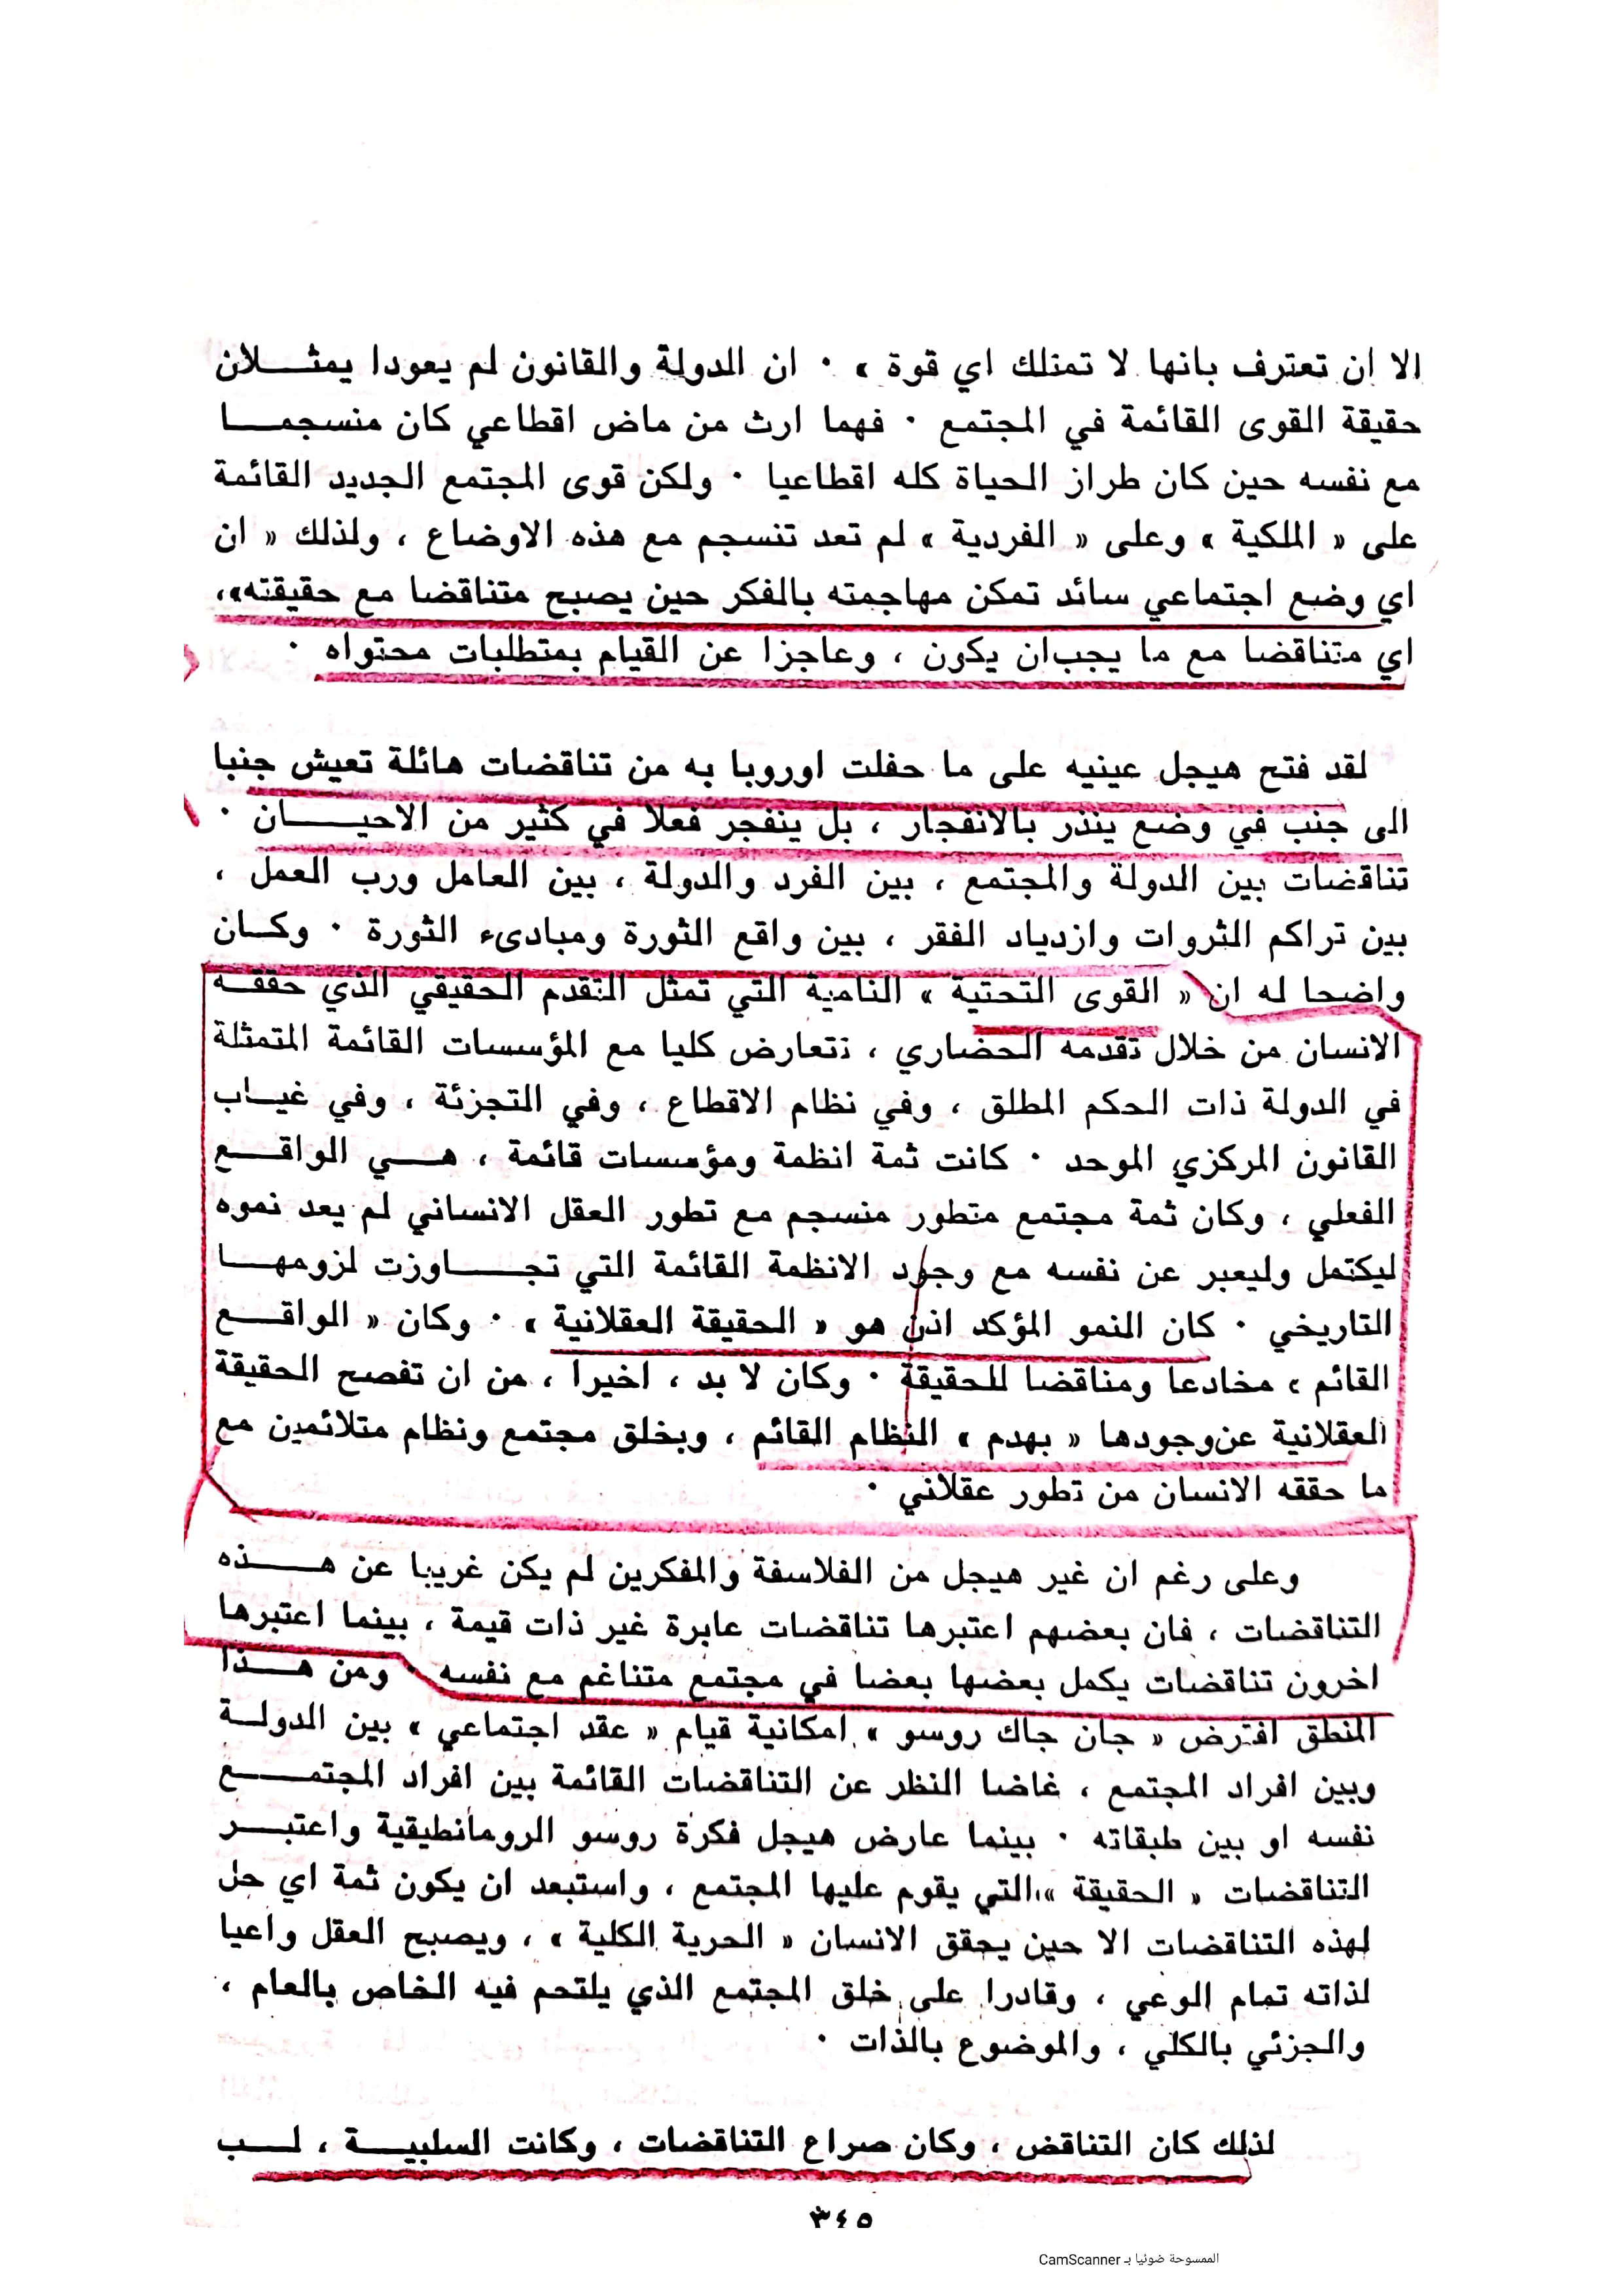 الا ان تعترف بانها لا تمتلك اي قوة » · ان الدولة والقانون لم يعودا يمثـــلان
حقيقة القوى القائمة في المجتمع · فهما ارث من ماض اقطاعي كان منسجمـــا
مع نفسه حين كان طراز الحياة كله اقطاعيا · ولكن قوى المجتمع الجديد القائمة
على « الملكية » وعلى « الفردية » لم تعد تنسجم مع هذه الاوضاع ، ولذلك « ان
اي وضع اجتماعي سائد تمكن مهاجمته بالفكر حين يصبح متناقضا مع حقيقته»،
اي متناقضا مع ما يجب ان يكون ، وعاجزا عن القيام بمتطلبات محتواه ·
لقد فتح هيجل عينيه على ما حفلت اوروبا به من تناقضات هائلة تعيش جنبا
الى جنب في وضع ينذر بالانفجار ، بل ينفجر فعلا في كثير من الاحيـــان ·
تناقضات بين الدولة والمجتمع ، بين الفرد والدولة ، بين العامل ورب العمل ،
بين تراكم الثروات وازدياد الفقر ، بين واقع الثورة ومبادىء الثورة · وكـان
واضحا له ان « القوى التحتية » النامية التي تمثل التقدم الحقيقي الذي حققـه
الانسان من خلال تقدمه الحضاري ، تتعارض كليا مع المؤسسات القائمة المتمثلة
في الدولة ذات الحكم المطلق ، وفي نظام الاقطاع ، وفي التجزئة ، وفي غيـاب
القانون المركزي الموحد · كانت ثمة انظمة ومؤسسات قائمة ، هـــي الواقـــع
الفعلي ، وكان ثمة مجتمع متطور منسجم مع تطور العقل الانساني لم يعد نموه
ليكتمل وليعبر عن نفسه مع وجود الانظمة القائمة التي تجـــاوزت لزومهـــا
التاريخي · كان النمو المؤكد اذن هو « الحقيقة العقلانية » · وكان « الواقـــع
القائم » مخادعا ومناقضا للحقيقة · وكان لا بد ، اخيرا ، من ان تفصح الحقيقة
العقلانية عن وجودها « بهدم » النظام القائم ، وبخلق مجتمع ونظام متلائمين مع
ما حققه الانسان من تطور عقلاني ·
وعلى رغم ان غير هيجل من الفلاسفة والمفكرين لم يكن غريبا عن هـــذه
التناقضات ، فان بعضهم اعتبرها تناقضات عابرة غير ذات قيمة ، بينما اعتبرها
اخرون تناقضات يكمل بعضها بعضا في مجتمع متناغم مع نفسه · ومن هـــذا
المنطق افترض « جان جاك روسو » امكانية قيام « عقد اجتماعي » بين الدولـة
وبين افراد المجتمع ، غاضا النظر عن التناقضات القائمة بين افراد المجتمـــع
نفسه او بين طبقاته · بينما عارض هيجل فكرة روسو الرومانطيقية واعتبـــر
التناقضات « الحقيقة » التي يقوم عليها المجتمع ، واستبعد ان يكون ثمة اي حل
لهذه التناقضات الا حين يحقق الانسان « الحرية الكلية » ، ويصبح العقل واعيا
لذاته تمام الوعي ، وقادرا على خلق المجتمع الذي يلتحم فيه الخاص بالعام ،
والجزئي بالكلي ، والموضوع بالذات ·
لذلك كان التناقض ، وكان صراع التناقضات ، وكانت السلبيـــة ، لـــب
٣٤٥
الممسوحة ضوئيا بـ CamScanner